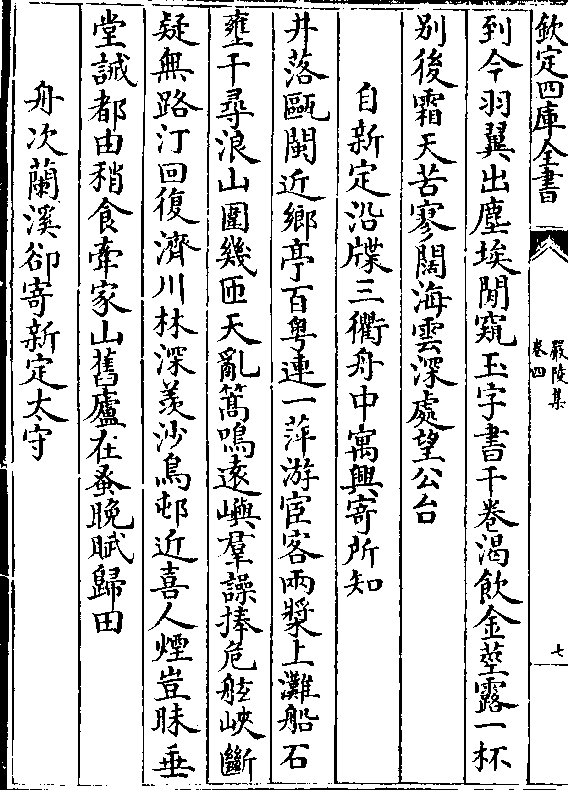 欽定四庫全書
嚴陵集
卷四
七
到今羽翼出塵埃閒窺玉字書千卷渴飲金莖露一杯
别後霜天苦寥闊海雲深處望公台
自新定沿牒三衢舟中寓興寄所知
井落甌閩近鄉亭百粤連一萍游宦客兩槳上灘船石
壅千尋浪山圍幾匝天亂篙鳴遠嶼羣譟捧危舷峽斷
疑無路汀回復濟川林深羨沙鳥邨近喜人煙豈昧垂
堂誡都由稍食牽家山舊廬在蚤晚賦歸田
舟次蘭溪卻寄新定太守